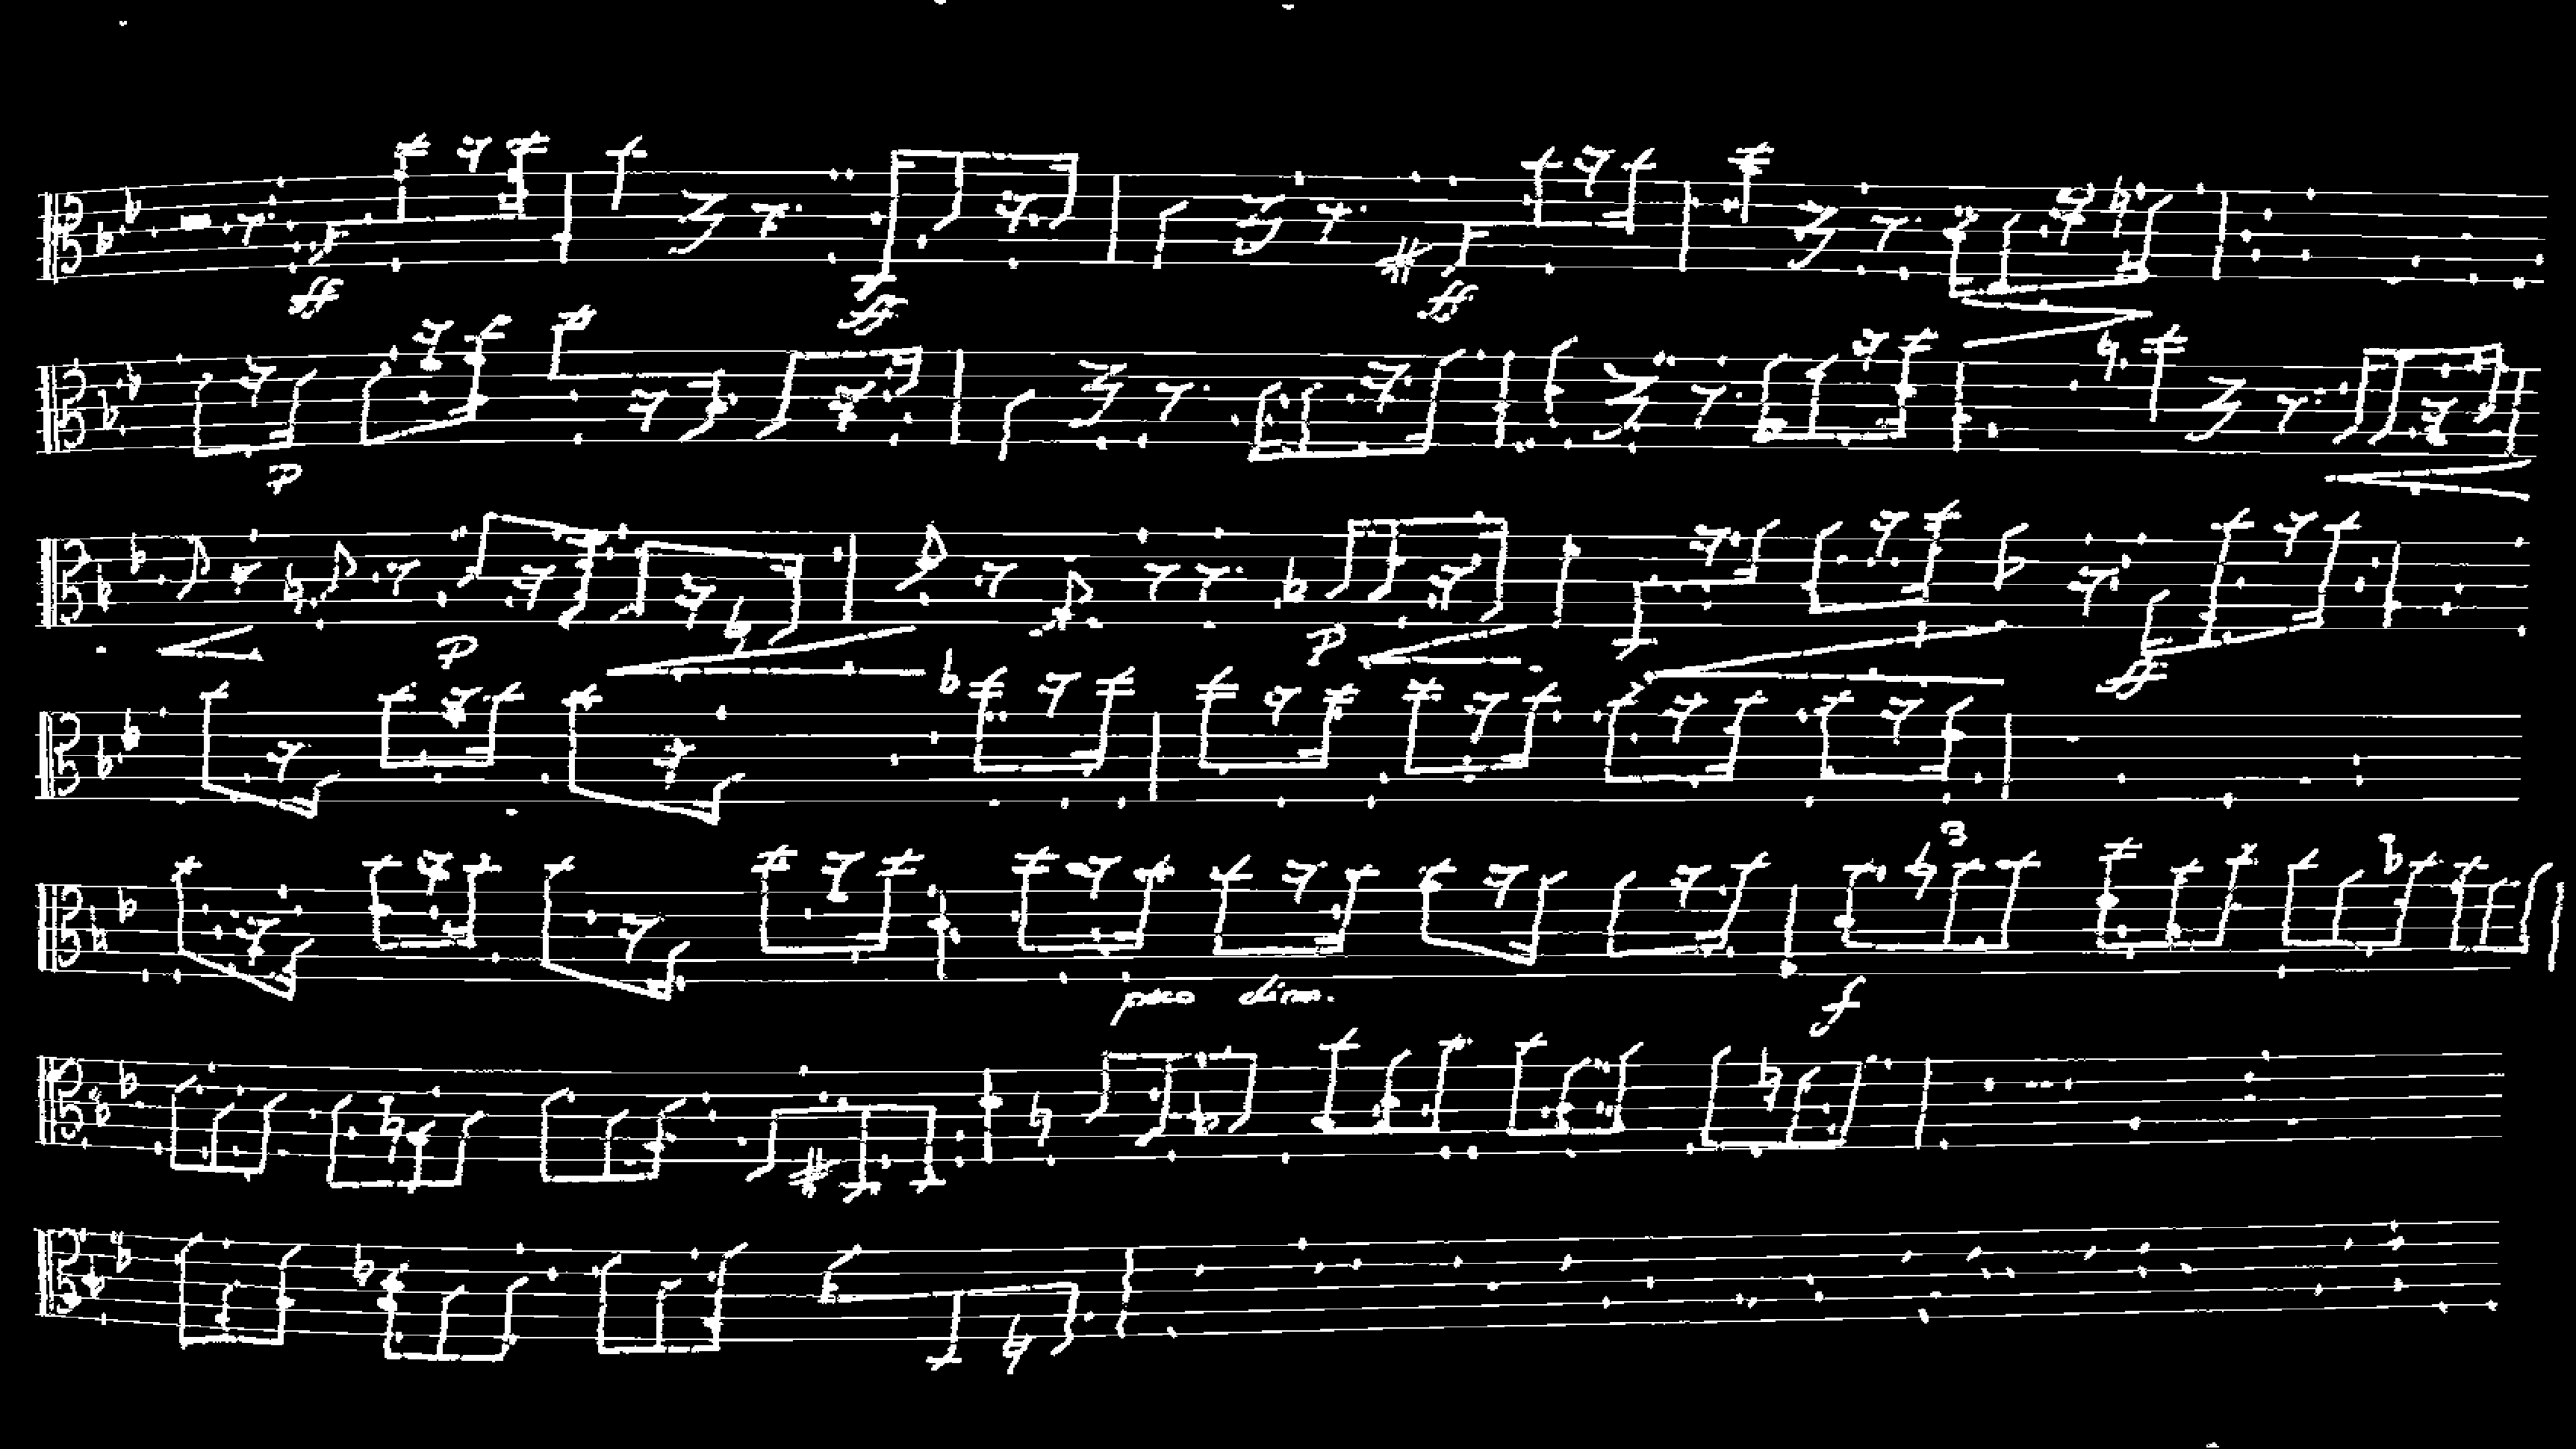 ff ff ff
p
p p ff
3
poco dim. f